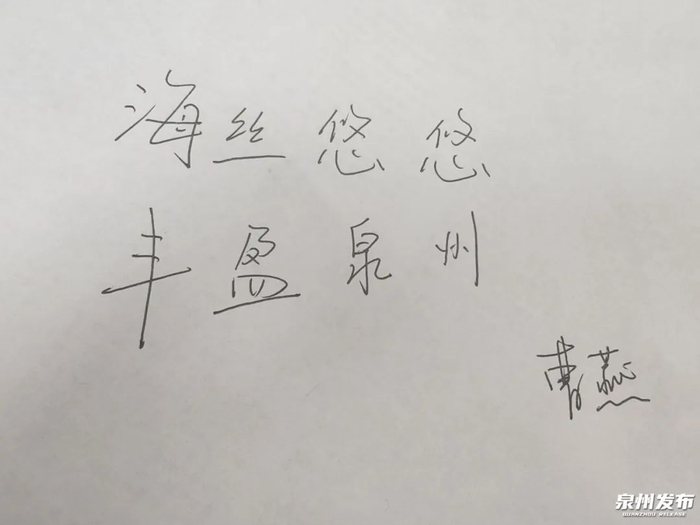 海丝悠悠
丰盈泉州
曹燕
泉州发布
QUANZHOU RELEASE